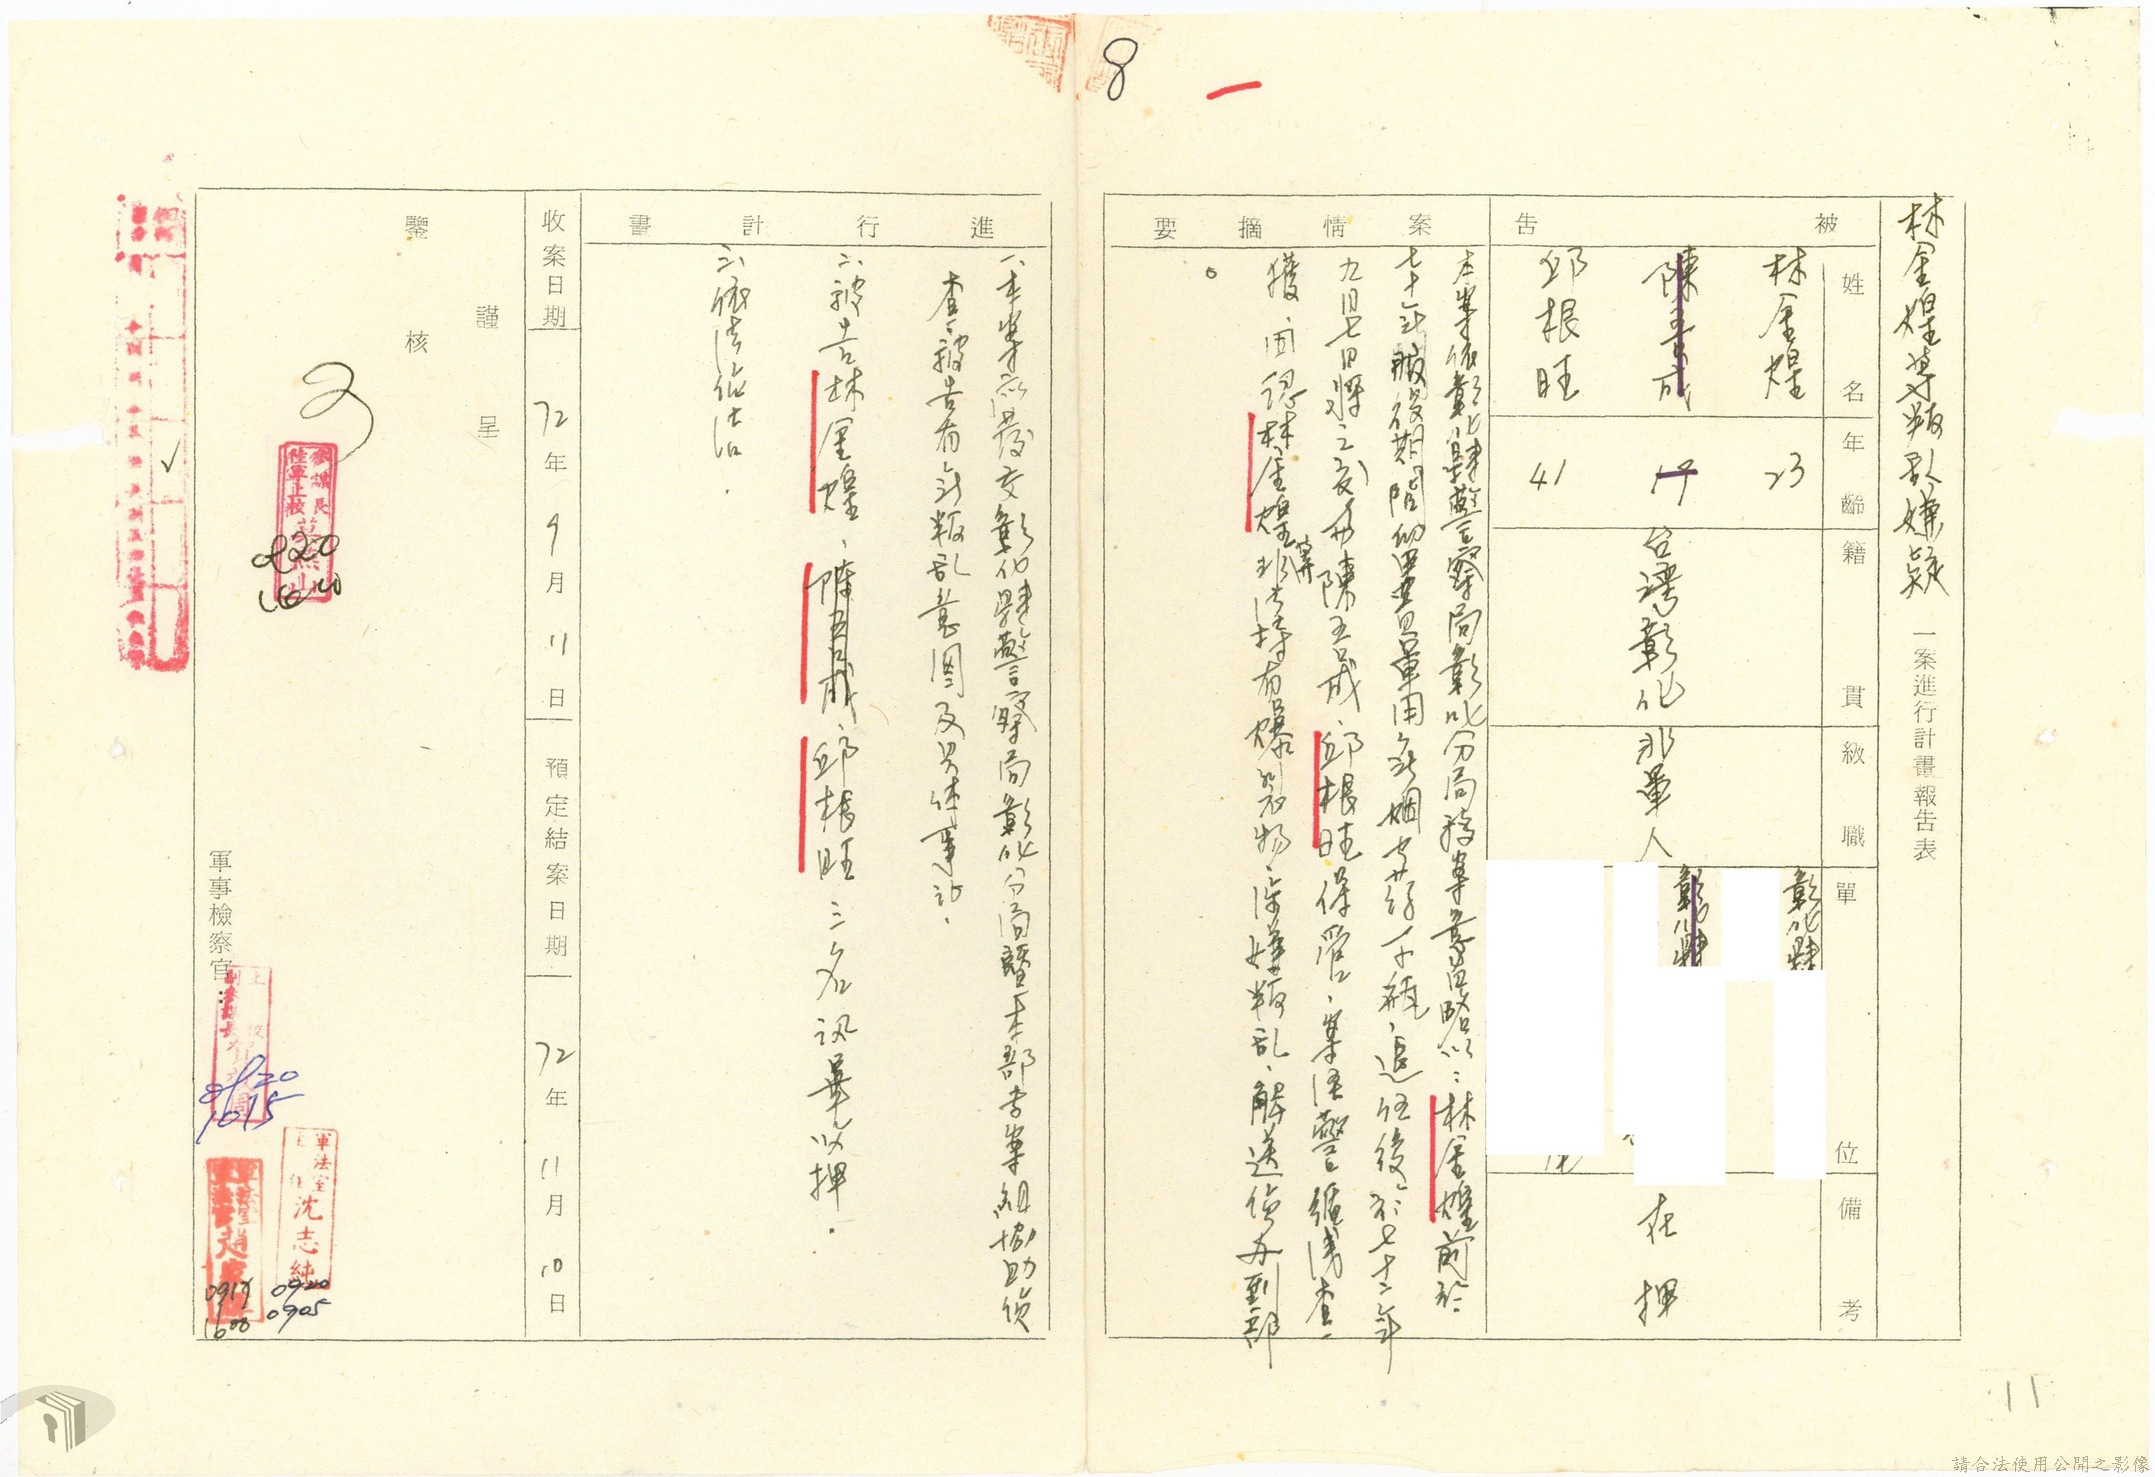 8
林金煌等叛亂嫌疑一案進行計畫報告表
被告
姓名
林金煌
陳五成
邱根旺
年齡
23
19
41
籍貫
台灣彰化
級職
非軍人
單位
彰化縣
彰化縣
備考
在押
案情摘要
本案依彰化縣警察局彰化分局移案意旨略以：林金煌前於
七十年服役期間
軍用
九月七日將之交予陳五成、邱根旺保管、案經警循線查
獲、因認林金煌等非法持有爆裂物、涉嫌叛亂、解送偵辦到部
。
進行計畫
一、本案
發交彰化縣警察局彰化分局暨本部專案組協助偵
查被告有無叛亂意圖及具體事証.
二、被告林金煌、陳五成、邱根旺三名訊畢
押.
三、依法偵
收案日期
72年9月11日
預定結案日期
72年11月10日
謹呈
核
鑒
軍事檢察官：
參謀長
陸軍上校
0920
上校
副參謀長
9/20
1015
軍法室
主任
沈志純
0920
0905
0919
1600
11
請合法使用公開之影像